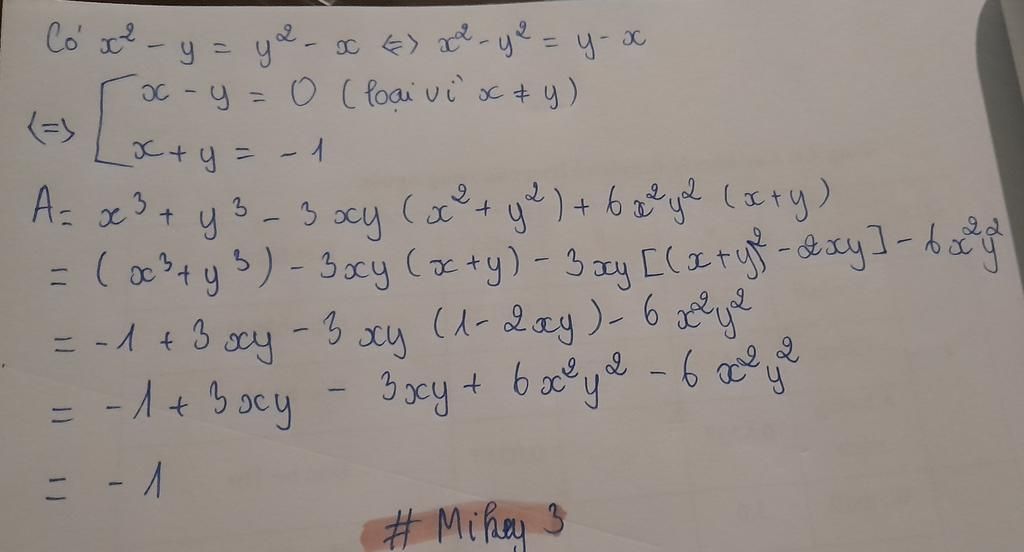 Có x² - y = y² - x <=> x² - y² = y - x
<=> [ x - y = 0 (loại vì x ≠ y)
x + y = - 1
A = x³ + y³ - 3xy (x² + y²) + 6x²y² (x + y)
= (x³ + y³) - 3xy (x + y) - 3xy [(x + y)² - 2xy] - 6x²y²
= -1 + 3xy - 3xy (1 - 2xy) - 6x²y²
= -1 + 3xy - 3xy + 6x²y² - 6x²y²
= - 1
# Mikey 3